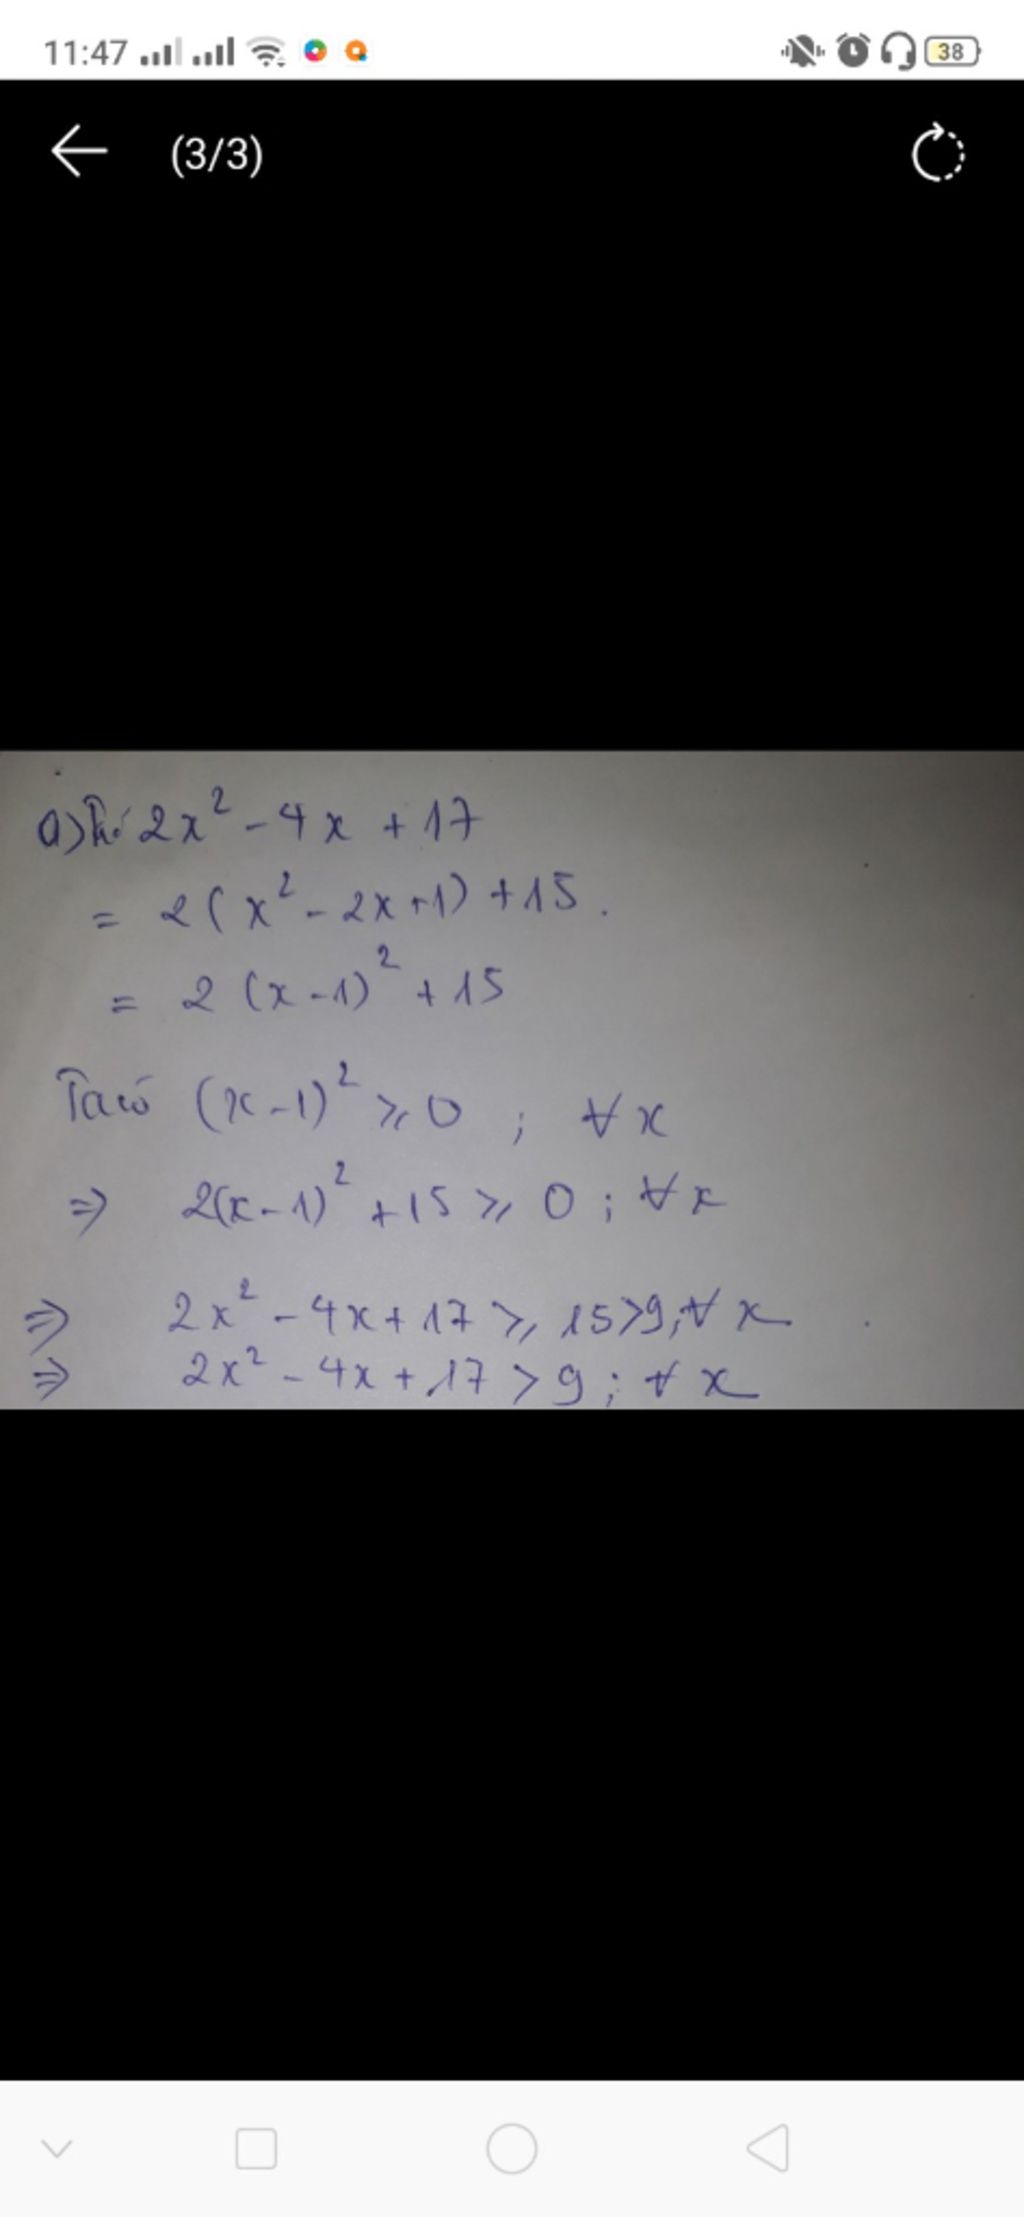 11:47
38
(3/3)
a) 2x² - 4x + 17
= 2(x² - 2x + 1) + 15.
= 2 (x - 1)² + 15
Ta có (x - 1)² ⩾ 0 ; ∀ x
⇒ 2(x - 1)² + 15 ⩾ 0 ; ∀ x
⇒ 2x² - 4x + 17 ⩾ 15 > 9; ∀ x
⇒ 2x² - 4x + 17 > 9 ; ∀ x